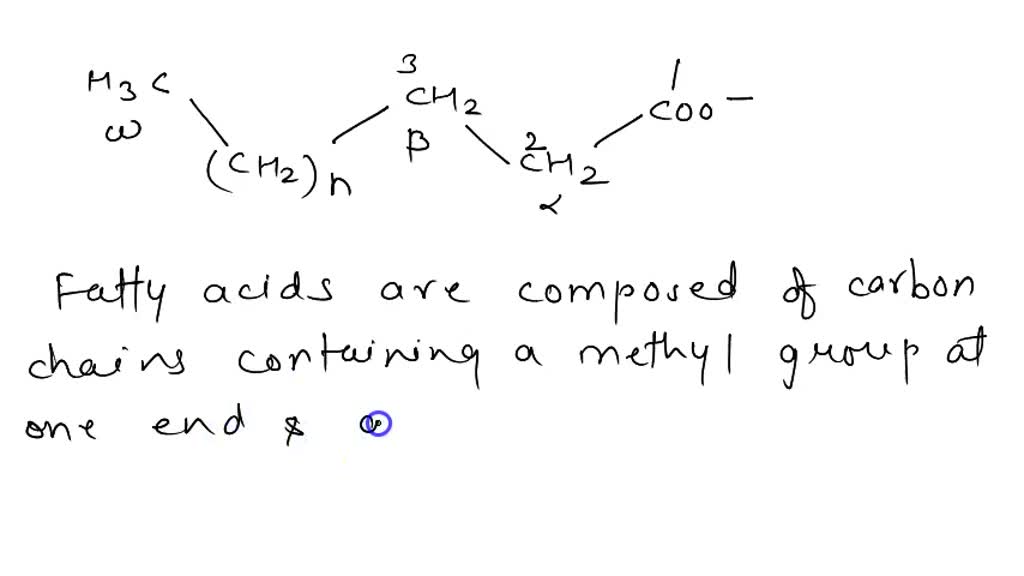 3
H3C CH2 COO-
ω β 2
(CH2)n CH2
α
Fatty acids are composed of carbon
chains containing a methyl group at
one end & a